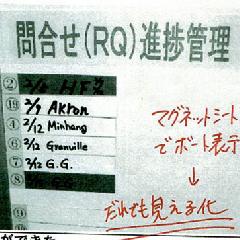 問合せ(RQ)進捗管理
② 2/6 HF
⑲ 2/9 Akron
④ 2/12 Minhang
⑥ 2/12 Granville
⑦ 3/12 G.G.
⑧
⑨
マグネットシート
でボート表示
↓
だれでも見える化
ができた